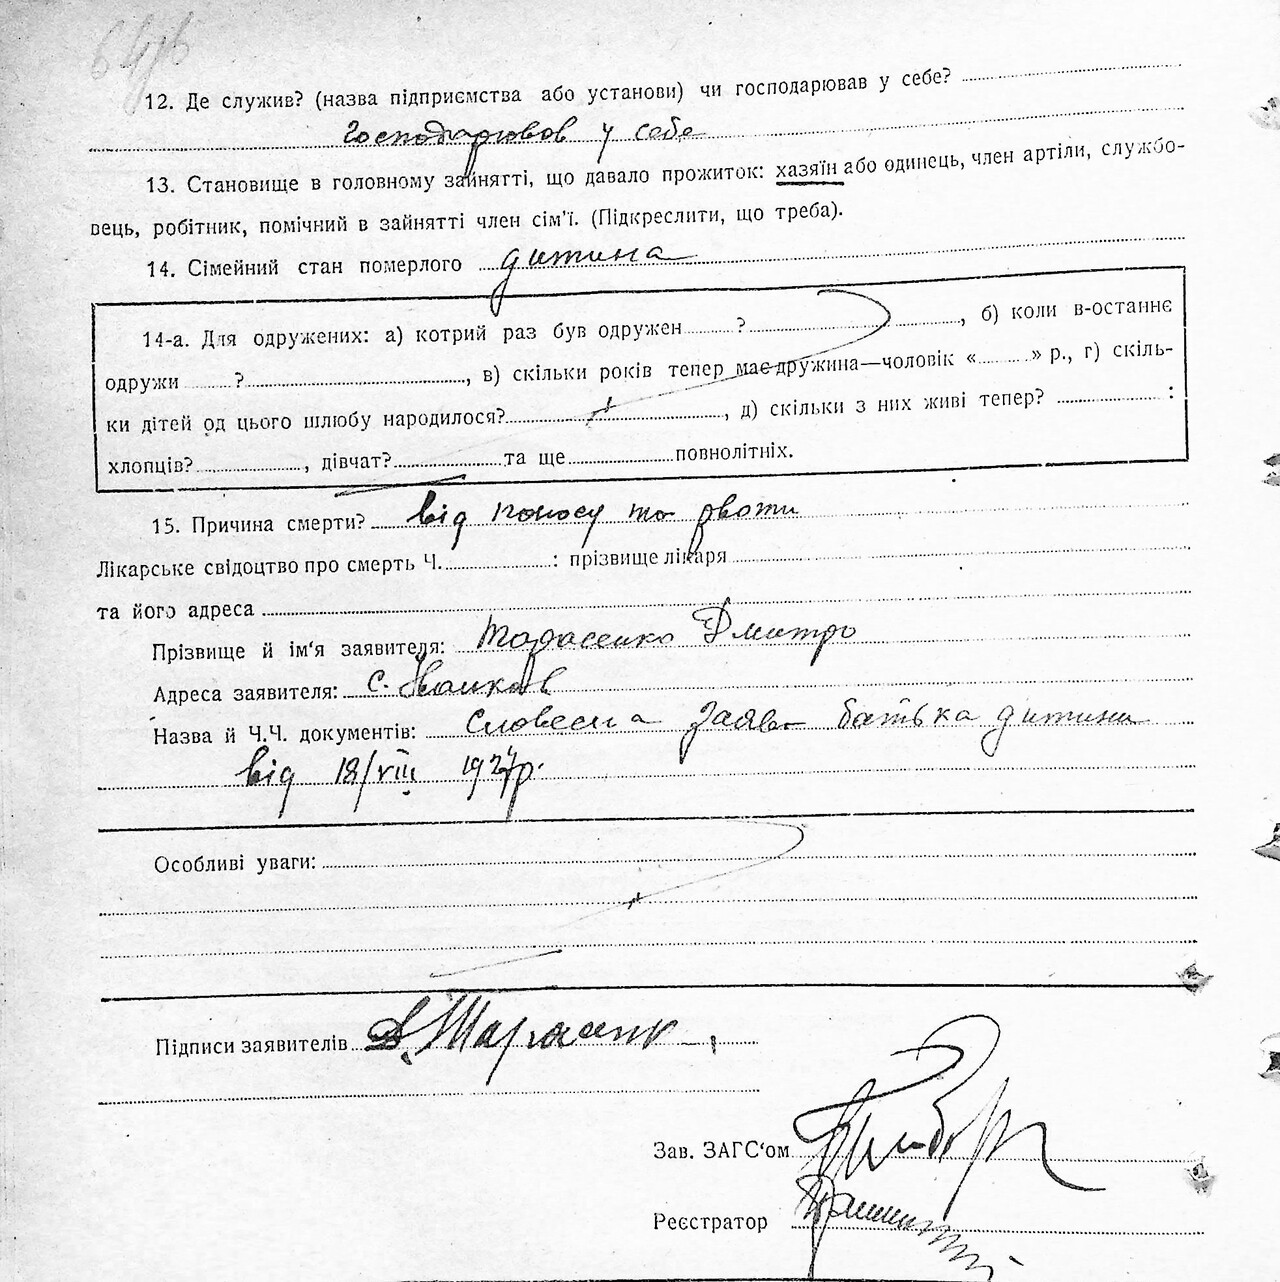 12. Де служив? (назва підприємства або установи) чи господарював у себе?
Господарював у себе
13. Становище в головному зайнятті, що давало прожиток: хазяїн або одинець, член артілі, службо-
вець, робітник, помічний в зайнятті член сім'ї. (Підкреслити, що треба).
14. Сімейний стан померлого дитина
14-а. Для одружених: а) котрий раз був одружен ? , б) коли в-останнє
одружи ? , в) скільки років тепер має дружина—чоловік « » р., г) скіль-
ки дітей од цього шлюбу народилося? , д) скільки з них живі тепер? :
хлопців? , дівчат? та ще повнолітніх.
15. Причина смерти? від поносу та рвоти
Лікарське свідоцтво про смерть Ч. : прізвище лікаря
та його адреса
Прізвище й ім'я заявителя: Тарасенко Дмитро
Адреса заявителя: с.
Назва й Ч.Ч. документів: Словесна заява батька дитини
від 18/VIII 1927р.
Особливі уваги:
Підписи заявителів Д. Тарасенко
Зав. ЗАГС'ом
Реєстратор